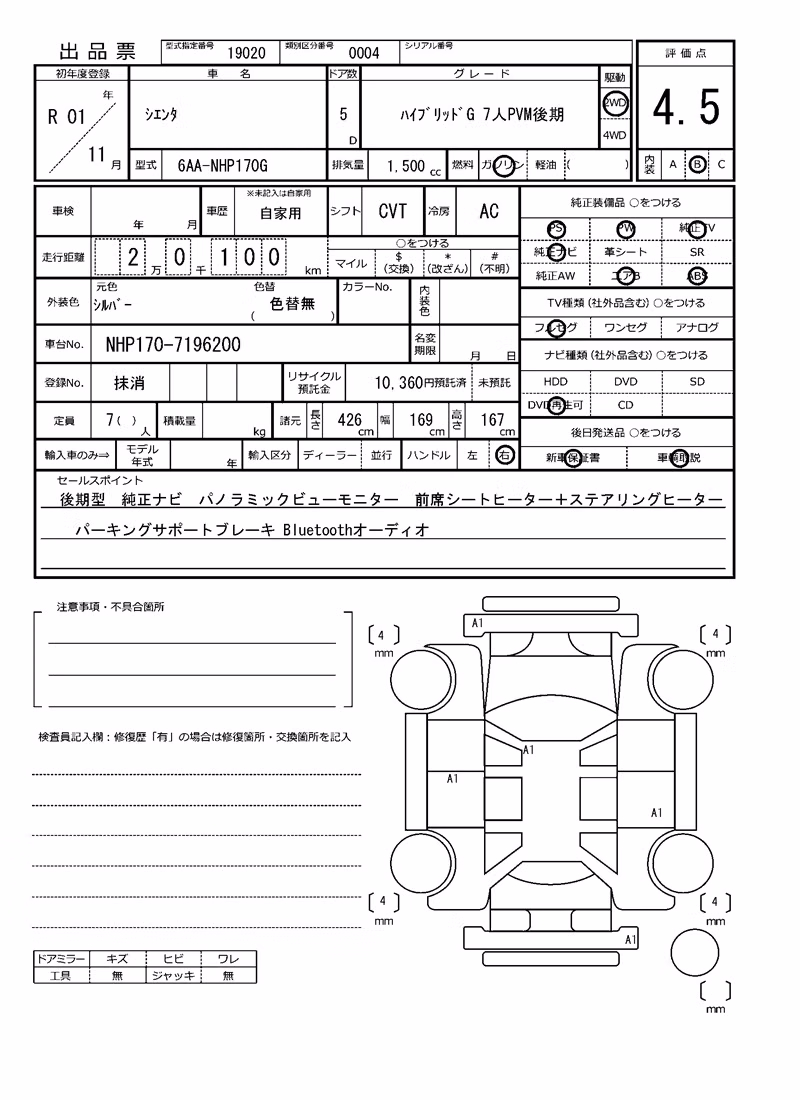 出品票
型式指定番号 19020 類別区分番号 0004 シリアル番号
評価点
4.5
内装 A B C
初年度登録 車名 ドア数 グレード 駆動
R 01 年 11 月
シエンタ
5 D
ハイブリッドG 7人PVM後期
2WD
4WD
型式 6AA-NHP170G 排気量 1,500 cc 燃料 ガソリン 軽油 ( )
車検 年 月 車歴 ※未記入は自家用 自家用 シフト CVT 冷房 AC
走行距離 2万0千100 km
○をつける
マイル $(交換) *(改ざん) #(不明)
外装色 元色 シルバー 色替 ( 色替無 ) カラーNo. 内装色
車台No. NHP170-7196200 名変期限 月 日
登録No. 抹消 リサイクル預託金 10,360円預託済 未預託
定員 7( )人 積載量 kg 諸元 長さ 426cm 幅 169cm 高さ 167cm
輸入車のみ⇒ モデル年式 年 輸入区分 ディーラー 並行 ハンドル 左 右
純正装備品 ○をつける
PS PW 純正TV
純正ナビ 革シート SR
純正AW エアB ABS
TV種類(社外品含む)○をつける
フルセグ ワンセグ アナログ
ナビ種類(社外品含む)○をつける
HDD DVD SD
DVD再生可 CD
後日発送品 ○をつける
新車保証書 車輌取説
セールスポイント
後期型 純正ナビ パノラミックビューモニター 前席シートヒーター+ステアリングヒーター
パーキングサポートブレーキ Bluetoothオーディオ
注意事項・不具合箇所
検査員記入欄:修復歴「有」の場合は修復箇所・交換箇所を記入
ドアミラー キズ ヒビ ワレ
工具 無 ジャッキ 無
A1
4 mm
4 mm
A1
A1
A1
4 mm
4 mm
A1
mm